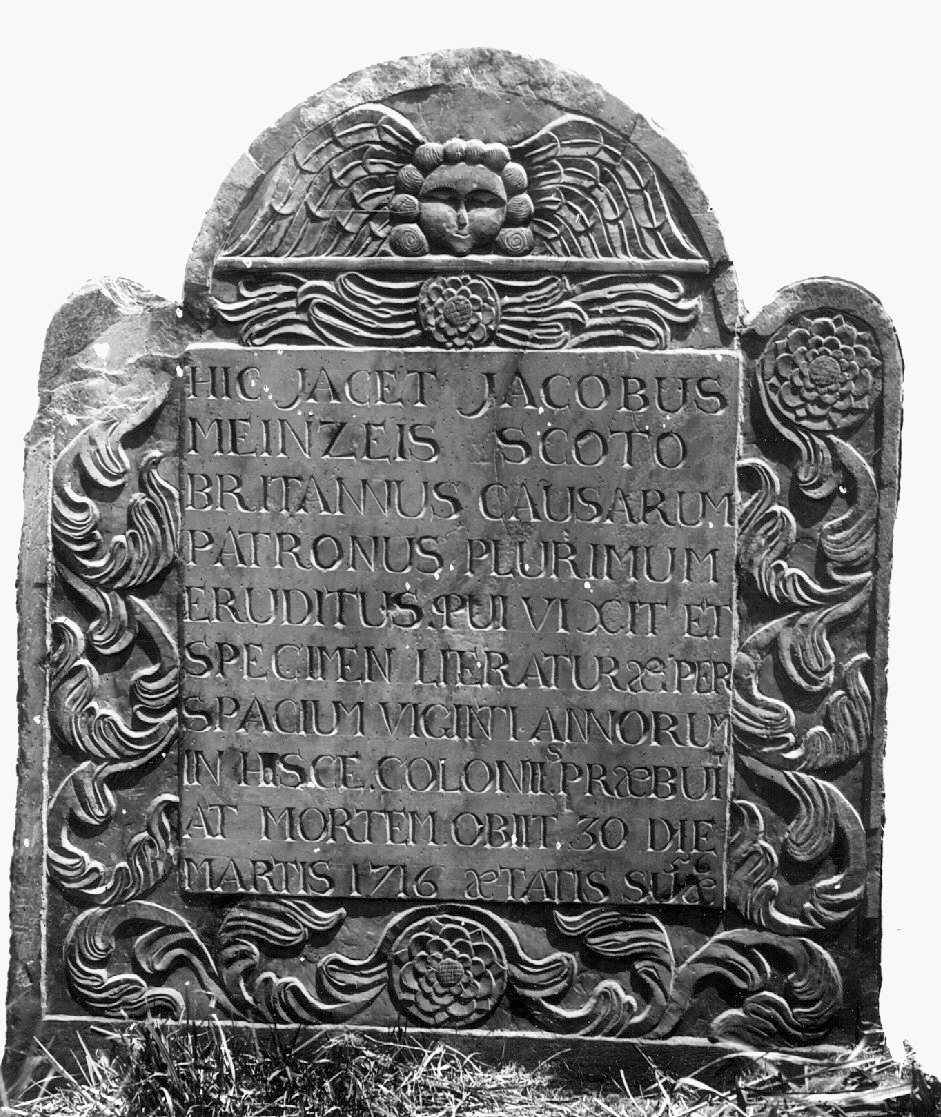 HIC JACET JACOBUS
MEINZEIS SCOTO
BRITANNUS CAUSARUM
PATRONUS PLURIMUM
ERUDITUS. QUI VIXIT ET
SPECIMEN LITERATURÆ. PER
SPACIUM VIGINTI ANNORUM
IN HISCE. COLONIIS PRÆBUI
AT MORTEM. OBIIT. 30 DIE
MARTIS 1716 ÆTATIS SUÆ 26